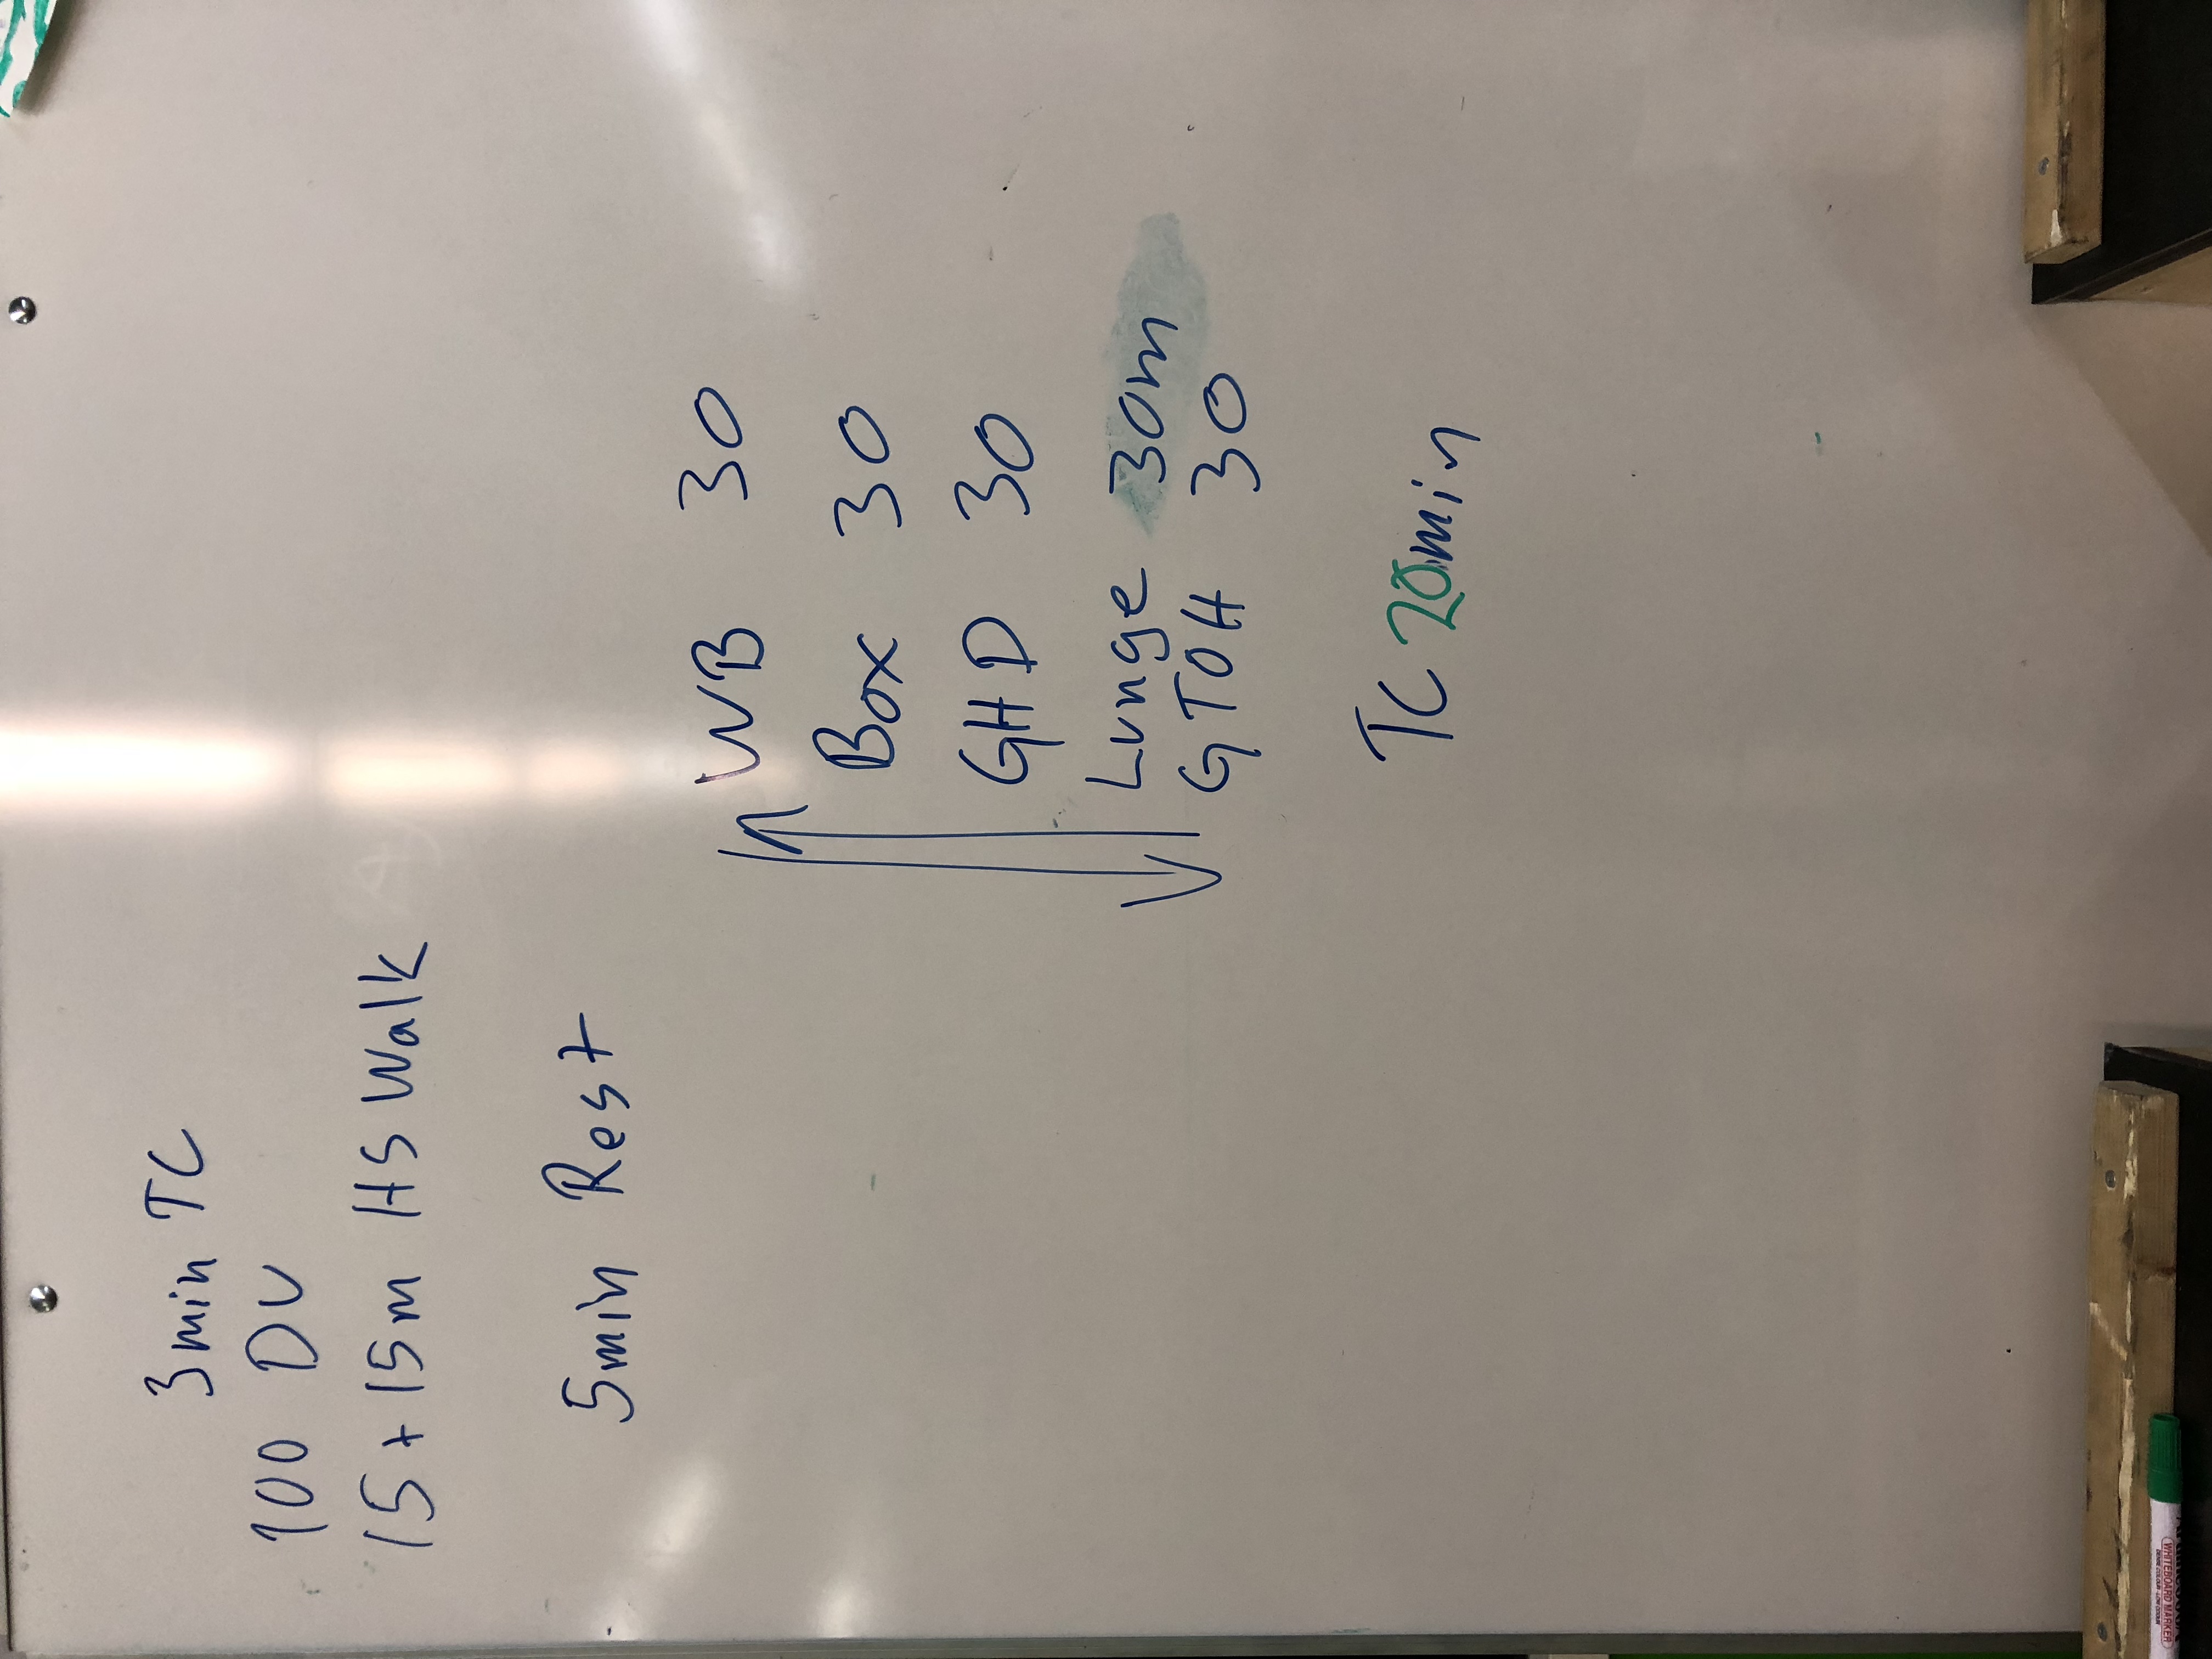 3min TC
100 DU
15 + 15m HS Walk
5min Rest
WB 30
Box 30
GHD 30
Lunge 30m
GTOH 30
TC 20min
WHITEBOARD MARKER